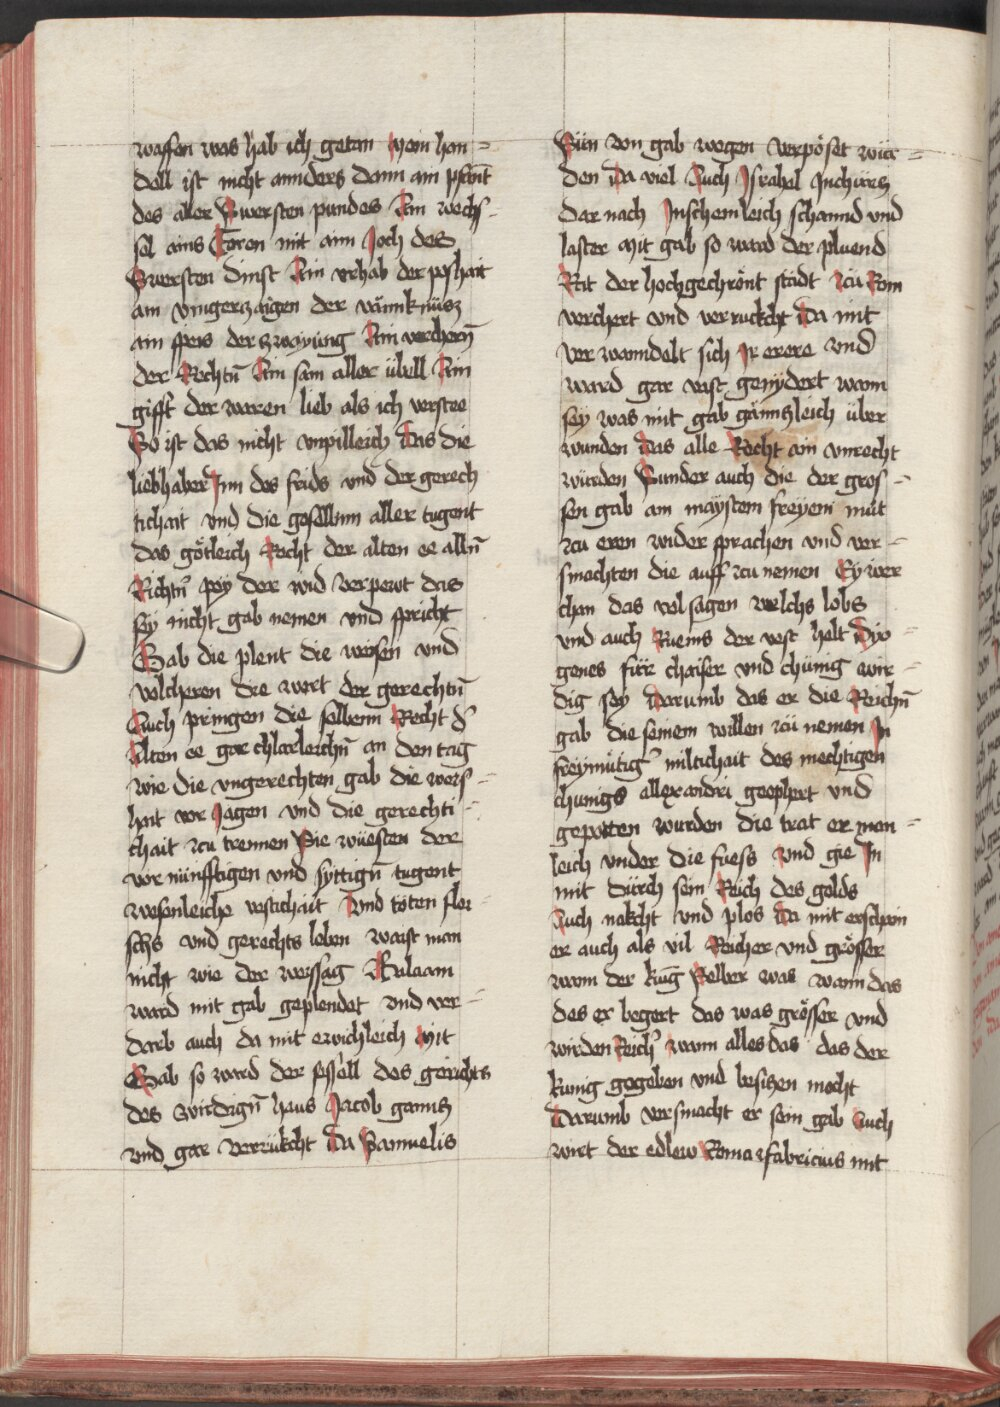 waffen was hab ich getan mein han=
dell ist nicht annders dann am pfant
des aller Swersten pundes Ain wechs-
sel ains Toren mit ann Joch des
Swersten dinst Ain vrhab der poshait
am vingerzaigen der vänknüsz
ain speis der zwayung Ain vercherñ
der Rechtñ Ain sam aller übell Ain
gifft der waren lieb als ich verstee
So ist das nicht vnpilleich das die
liebhaber Inn des frids vnd der gerech
tichait vnd die gesellinn aller tugent
das götleich Recht der alten ee allñ
Richtñ pey der wid verpewt das
sy nicht gab nemen vnd spricht
Gab die plent die weisen vnd
volcheren die wort der gerechtñ
Auch pringen die selbenn Recht dˀ
Alten ee gar chlerleichñ an den tag
wie die vngerechten gab die wers-
hait vor Jagen vnd die gerechti-
chait zcu trennen Sie wüesten der
vor nünfftigen vnd syttigñ tugent
wesenleiche vestichait Vnd töten flei-
schs vnd gerechts leben waist man
nicht wie der weyssag Balaam
ward mit gab geplendet vnd ver-
darb auch da mit ewichleich Mit
Gab so ward der sessell des gerichts
des wirdigñ haus Jacob gannz
vnd gar verrükcht Da Samuelis
Sün von gab wegen verpöset wur=
den Da viel Auch Israhel
Dar nach schannd vnd
laster Mit gab so ward der pluend
Rat der hochgechrönt stadt zcu Rom
verchert vnd verruckcht Da mit
ver wanndelt sich Ir erere vnd
ward gar vast genydert wann
sey was mit gab gännzleich über
wunden Das alle Recht ain vnrecht
würden Sunder auch die der gros-
sen gab am maystem freyem müt
zcu eren wider sprachen vnd ver-
smachten die auff zcu nemen Ey wer
chan das vol sagen welchs lobs
vnd auch Ruems der vest helt Dyo-
genes für chaiser vnd chünig wir-
dig sey Darumb das er die Reichñ
gab die seinem willen zcü nemen In
freymütigˀ miltichait des mechtigen
chunigs allexandri geophert vnd
gepotten wurden die trat er man-
leich vnder die fuess Vnd gie In
mit dürch sein Reich des golds
Auch nakcht vnd plos Da mit erschain
er auch als vil Reicher vnd grösser
wann der kung Selber was wann das
des er begert das was grösser vnd
wirden Reichˀ wann alles das das der
kunig gegeben vnd besizen mocht
Darumb versmacht er sein gab Auch
wirt der edlew Romar fabricius mit